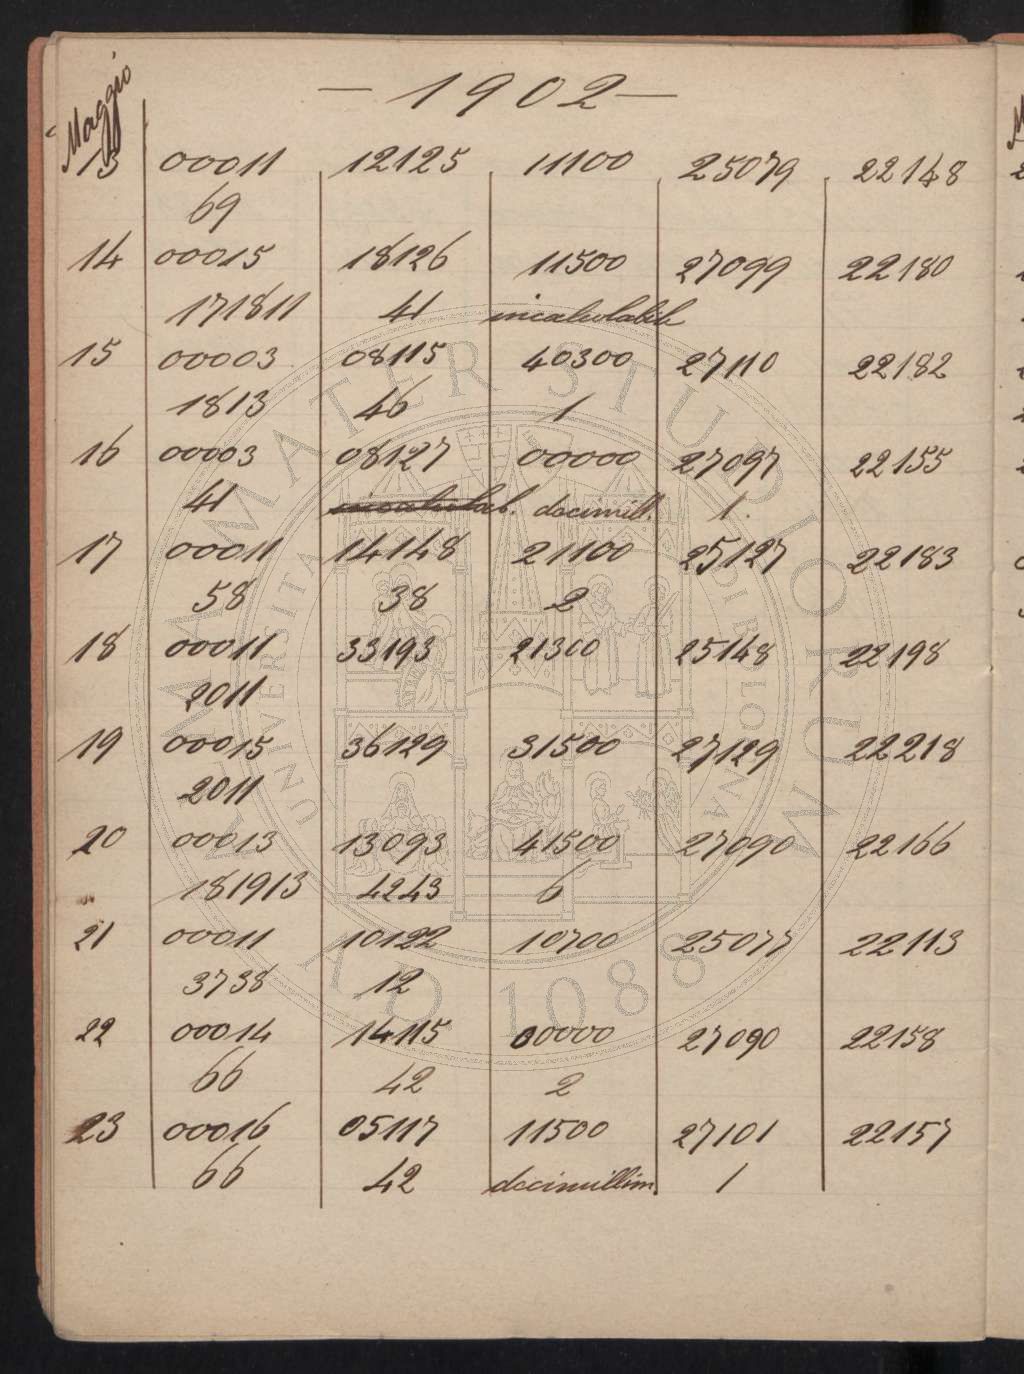 — 1902 —
Maggio
13 00011 12125 11100 25079 22148
69
14 00015 18126 11500 27099 22180
171811 41 incalcolabile
15 00003 08115 40300 27110 22182
1813 46 1
16 00003 08127 00000 27097 22155
41 incalcolab. decimill. 1.
17 00011 14148 21100 25127 22183
58 38 2
18 00011 33193 21300 25148 22198
2011
19 00015 36129 31500 27129 22218
2011
20 00013 13093 41500 27090 22166
181913 4243 6
21 00011 10122 10700 25077 22113
3738 12
22 00014 14115 00000 27090 22158
66 42 2
23 00016 05117 11500 27101 22157
66 42 decimillim. 1
ALMA MATER STUDIORUM
UNIVERSITA
A.D. 1088